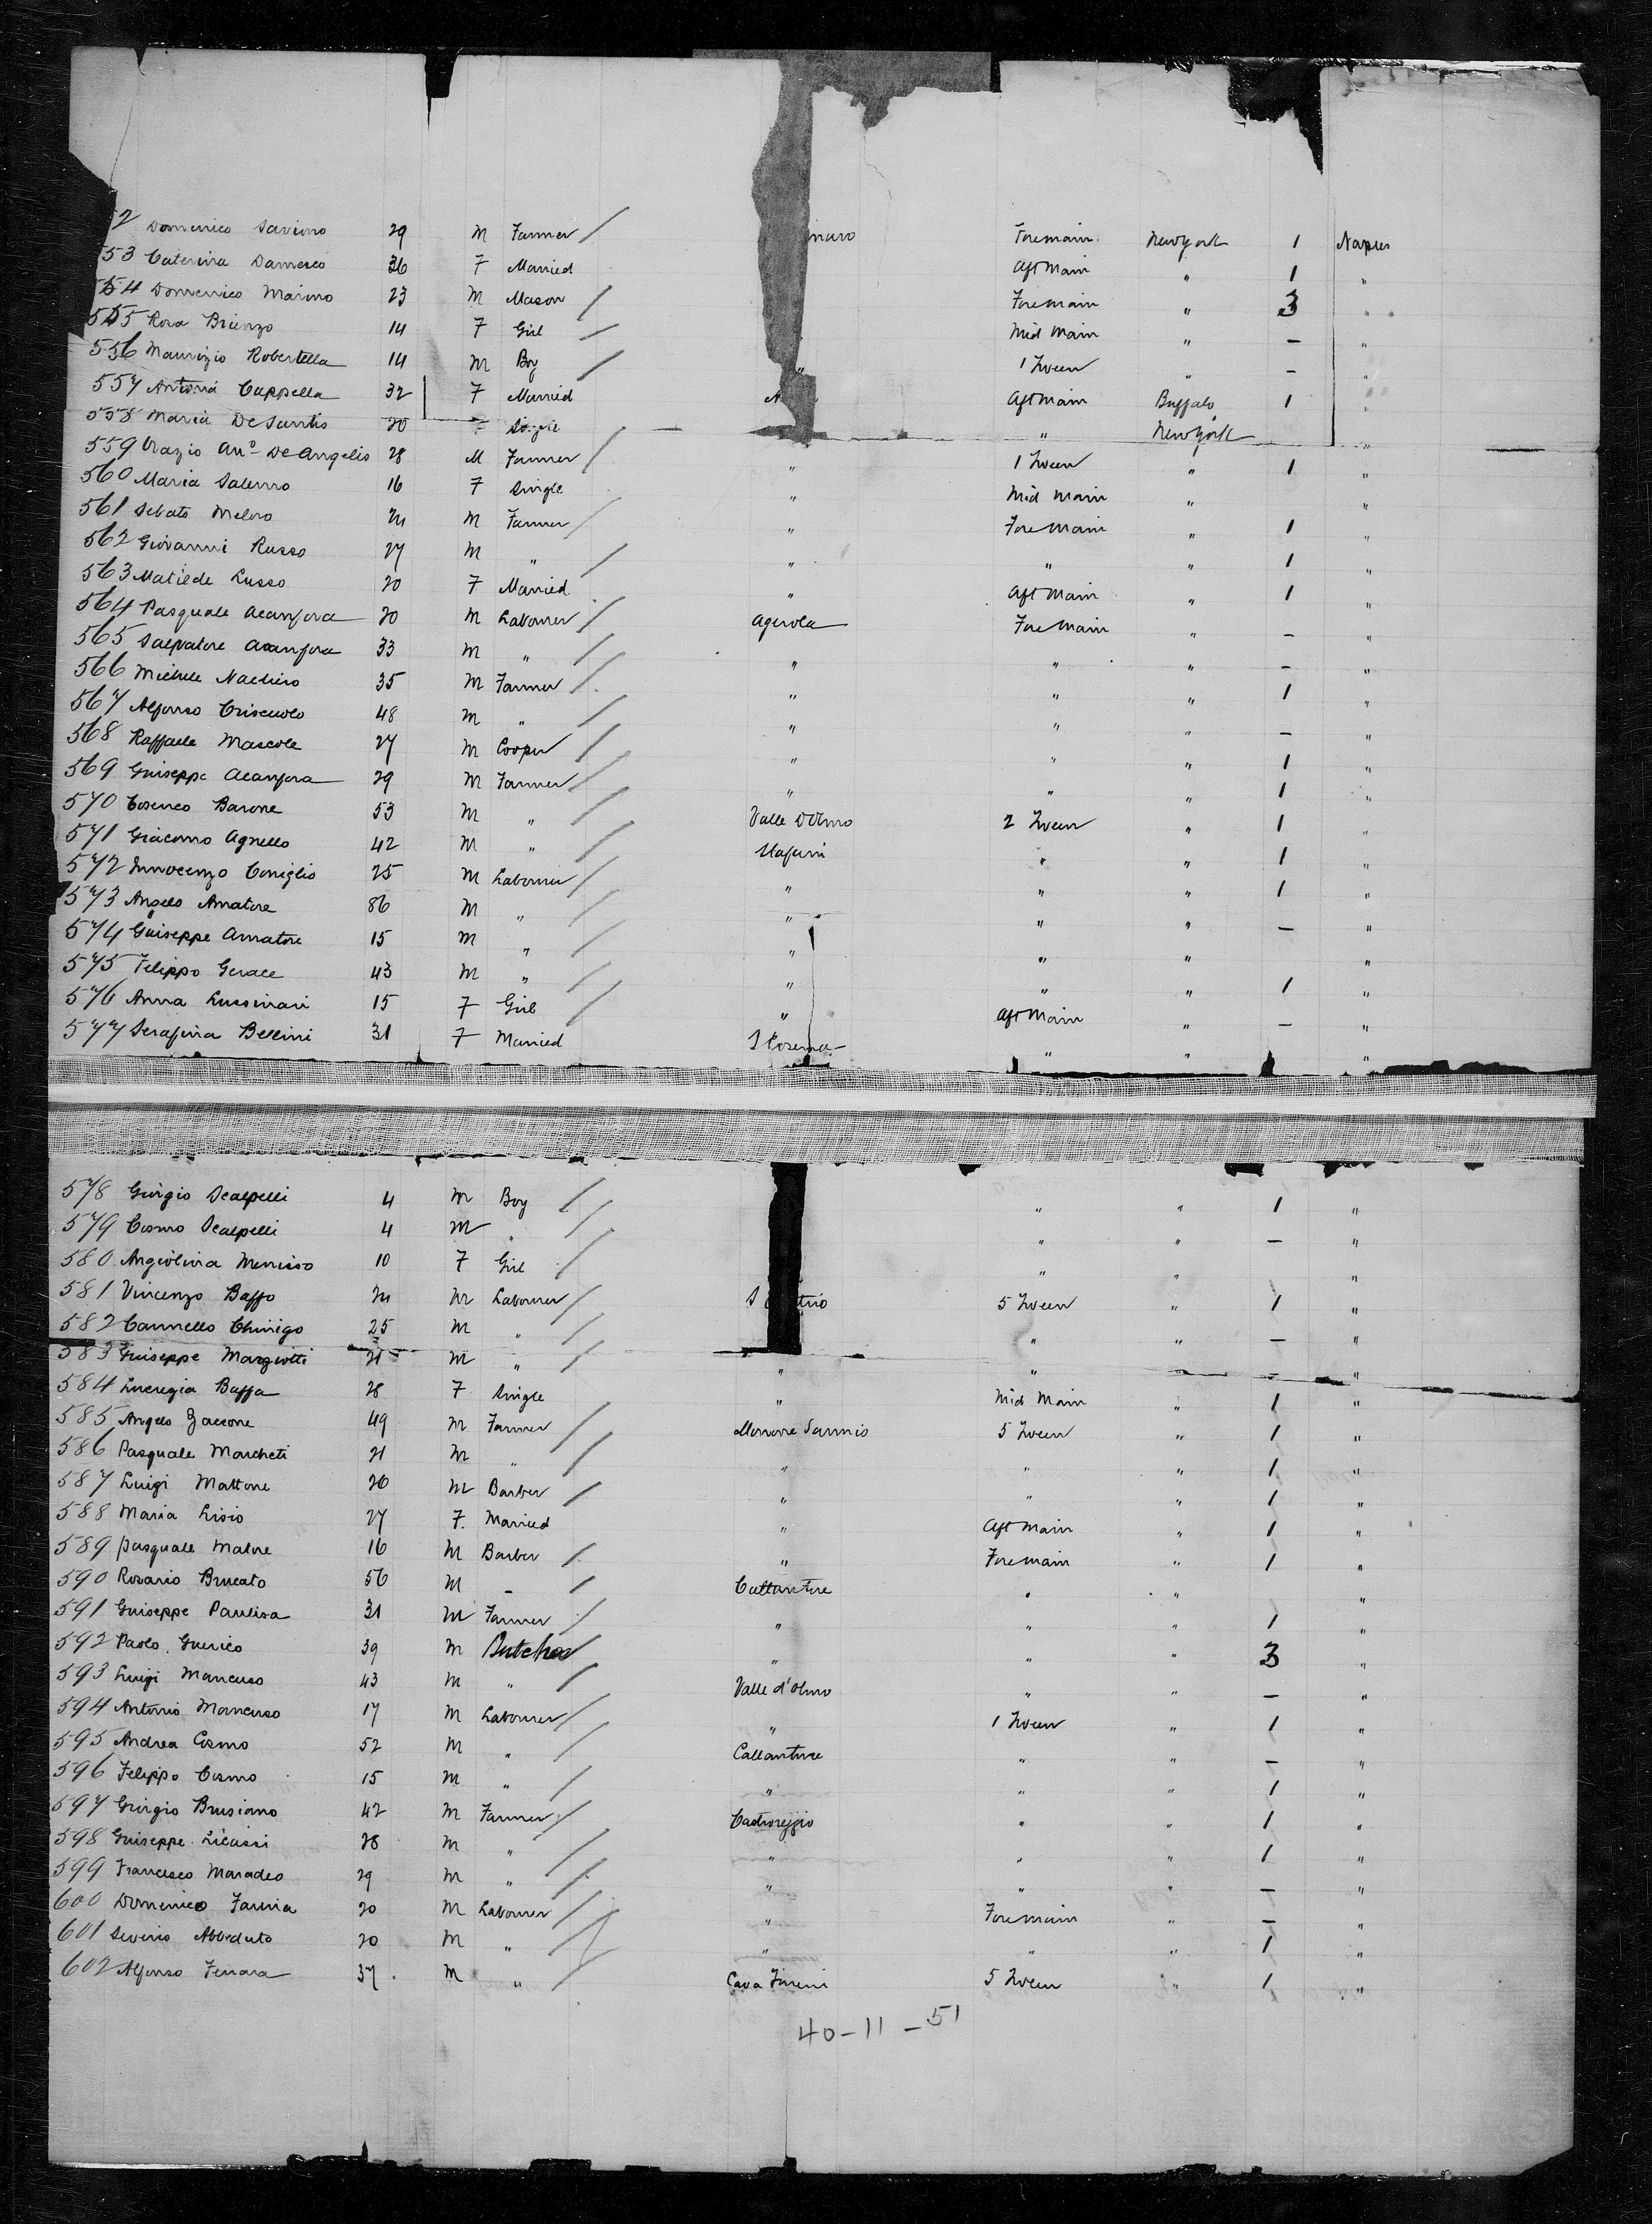 52 Domenico Savino 29 M Farmer / naro Foremain New York 1 Naples
553 Caterina Damesco 36 F Married Aft Main " 1 "
554 Domenico Marino 23 M Mason / Foremain " 3 "
555 Rosa Brienzo 14 F Girl / Mid Main " – "
556 Maurizio Robertella 14 M Boy / " 1 Tween " – "
557 Antonia Cappella 32 F Married A Aft Main Buffalo 1 "
558 Maria De Santis 20 F Single " New York "
559 Orazio Anº De Angelis 28 M Farmer / " 1 Tween " 1 "
560 Maria Salerno 16 F Single " Mid Main " "
561 Sebato Meloro M Farmer / " Fore Main " 1 "
562 Giovanni Russo 27 M " / " " " 1 "
563 Matilde Lusso 20 F Married " Aft Main " 1 "
564 Pasquale Acanfora 20 M Labourer / Agerola Fore Main " – "
565 Salvatore Acanfora 33 M " / " " " – "
566 Michele Naclerio 35 M Farmer / " " " 1 "
567 Alfonso Criscuolo 48 M " / " " " – "
568 Raffaele Mascole 27 M Cooper / " " " 1 "
569 Guiseppe Acanfora 29 M Farmer / " " " 1 "
570 Cosenco Barone 53 M " / Valle Dolmo 2 Tween " 1 "
571 Giacomo Agnello 42 M " / Alafurni " " 1 "
572 Innocenzo Coniglio 25 M Labourer / " " " 1 "
573 Angelo Amatore 86 M " / " " " – "
574 Guiseppe Amatore 15 M " / " " " "
575 Filippo Gerace 43 M " / " " " 1 "
576 Anna Lussinari 15 F Girl / " Aft Main " – "
577 Serafina Bellini 31 F Married " " "
578 Giorgio Scalpelli 4 M Boy / " " 1 "
579 Cosmo Scalpelli 4 M " / " " – "
580 Angiolina Menisso 10 F Girl / " " "
581 Vincenzo Baffo M Labourer / S trio 5 Tween " 1 "
582 Carmello Chinigo 25 M " / " " – "
583 Guiseppe Marziotti 21 M " / " " " – "
584 Lucrezia Baffa 28 F Single " Mid Main " 1 "
585 Angelo Zaccone 49 M Farmer / Morrone Sannio 5 Tween " 1 "
586 Pasquale Marcheti 21 M " / " " " 1 "
587 Luigi Mattone 26 M Barber / " " " 1 "
588 Maria Lisio 27 F. Married " Aft Main " 1 "
589 Pasquale Matore 16 M Barber / " Foremain " 1 "
590 Rosario Brucato 56 M – / Callanture " " "
591 Guiseppe Paulisa 31 M Farmer / " " " 1 "
592 Paolo Guerico 39 M Butcher / " " " 3 "
593 Luigi Mancuso 43 M " / Valle d'olmo " " – "
594 Antonio Mancuso 17 M Labourer / " 1 Tween " 1 "
595 Andrea Cosmo 52 M " / Callanture " " – "
596 Filippo Cosmo 15 M " / " " " 1 "
597 Giorgio Brusiano 42 M Farmer / Castroreggio " " 1 "
598 Guiseppe Licassi 28 M " / " " " 1 "
599 Francesco Maradeo 29 M " / " " " – "
600 Domenico Farina 20 M Labourer / " Foremain " – "
601 Severio Abbeduto 20 M " / " " " 1 "
602 Alfonso Ferrara 37 M " / Cava Tirreni 5 Tween " 1 "
40-11-51